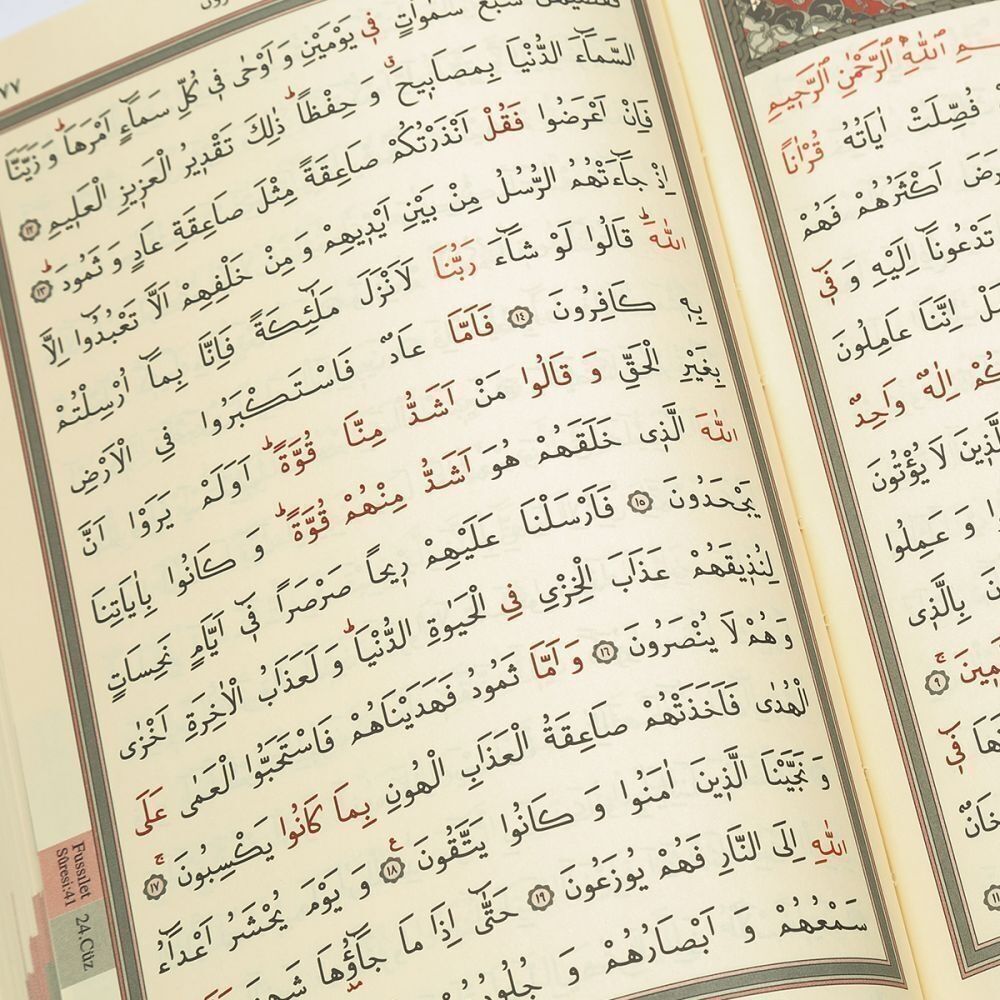 سَمٰوَاتٍ فٖي يَوْمَيْنِ وَ اَوْحٰى فٖي كُلِّ سَمَٓاءٍ اَمْرَهَاؕ وَ زَيَّنَّا
السَّمَٓاءَ الدُّنْيَا بِمَصَابٖيحَۗ وَ حِفْظاًؕ ذٰلِكَ تَقْدٖيرُ الْعَزٖيزِ الْعَلٖيمِ ١٢
فَاِنْ اَعْرَضُوا فَقُلْ اَنْذَرْتُكُمْ صَاعِقَةً مِثْلَ صَاعِقَةِ عَادٍ وَ ثَمُودَؕ ١٣
اِذْ جَٓاءَتْهُمُ الرُّسُلُ مِنْ بَيْنِ اَيْدٖيهِمْ وَ مِنْ خَلْفِهِمْ اَلَّا تَعْبُدُٓوا اِلَّا
اللّٰهَؕ قَالُوا لَوْ شَٓاءَ رَبُّنَا لَاَنْزَلَ مَلٰٓئِكَةً فَاِنَّا بِمَٓا اُرْسِلْتُمْ
بِهٖ كَافِرُونَ ١٤ فَاَمَّا عَادٌ فَاسْتَكْبَرُوا فِي الْاَرْضِ
بِغَيْرِ الْحَقِّ وَ قَالُوا مَنْ اَشَدُّ مِنَّا قُوَّةًؕ اَوَلَمْ يَرَوْا اَنَّ
اللّٰهَ الَّذٖي خَلَقَهُمْ هُوَ اَشَدُّ مِنْهُمْ قُوَّةًؕ وَ كَانُوا بِاٰيَاتِنَا
يَجْحَدُونَ ١٥ فَاَرْسَلْنَا عَلَيْهِمْ رٖيحاً صَرْصَراً فٖٓي اَيَّامٍ نَحِسَاتٍ
لِنُذٖيقَهُمْ عَذَابَ الْخِزْيِ فِي الْحَيٰوةِ الدُّنْيَاؕ وَ لَعَذَابُ الْاٰخِرَةِ اَخْزٰى
وَ هُمْ لَا يُنْصَرُونَ ١٦ وَ اَمَّا ثَمُودُ فَهَدَيْنَاهُمْ فَاسْتَحَبُّوا الْعَمٰى عَلَى
الْهُدٰى فَاَخَذَتْهُمْ صَاعِقَةُ الْعَذَابِ الْهُونِ بِمَا كَانُوا يَكْسِبُونَۚ ١٧
وَ نَجَّيْنَا الَّذٖينَ اٰمَنُوا وَ كَانُوا يَتَّقُونَ ١٨ وَ يَوْمَ يُحْشَرُ اَعْدَٓاءُ
اللّٰهِ اِلَى النَّارِ فَهُمْ يُوزَعُونَ ١٩ حَتّٰٓى اِذَا مَا جَٓاؤُ۫هَا
سَمْعُهُمْ وَ اَبْصَارُهُمْ وَ
Fussılet
Sûresi:41
24.Cüz
اللّٰهِ الرَّحْمٰنِ الرَّحٖيمِ
فُصِّلَتْ اٰيَاتُهُ قُرْاٰناً
اَكْثَرُهُمْ فَهُمْ
تَدْعُونَٓا اِلَيْهِ وَ فٖٓي
اِنَّنَا عَامِلُونَ
اِلٰهٌ وَاحِدٌ
لَا يُؤْتُونَ
وَ عَمِلُوا
بِالَّذٖي
٩
فٖي